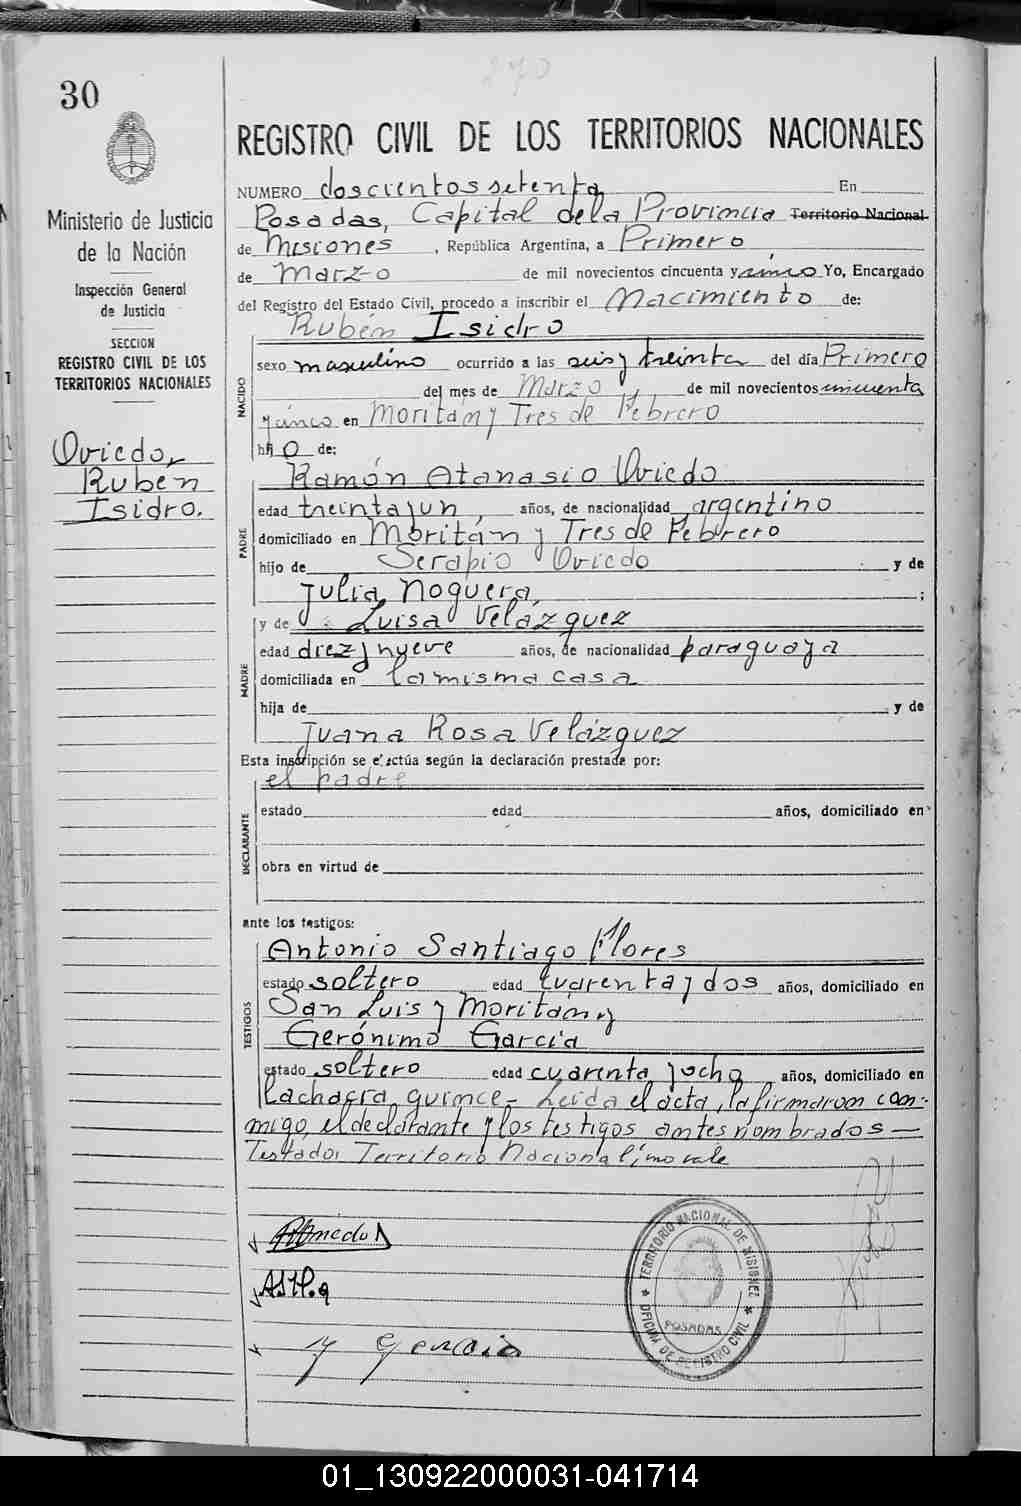 270
30
REGISTRO CIVIL DE LOS TERRITORIOS NACIONALES
Ministerio de Justicia
de la Nación
Inspección General
de Justicia
SECCION
REGISTRO CIVIL DE LOS
TERRITORIOS NACIONALES
Oviedo,
Rubén
Isidro.
NUMERO doscientos setenta En
Posadas, Capital de la Provincia Territorio Nacional
de Misiones, República Argentina, a Primero
de Marzo de mil novecientos cincuenta y cinco Yo, Encargado
del Registro del Estado Civil, procedo a inscribir el Nacimiento de:
Rubén Isidro
NACIDO
sexo masculino ocurrido a las seis y treinta del día Primero
del mes de Marzo de mil novecientos cincuenta
y cinco en Moritán y Tres de Febrero
hijo de:
Ramón Atanasio Oviedo
PADRE
edad treinta y un, años, de nacionalidad argentino
domiciliado en Moritán y Tres de Febrero
hijo de Serapio Oviedo y de
Julia Noguera,
y de Luisa Velázquez
MADRE
edad diez y nueve años, de nacionalidad paraguaya
domiciliada en la misma casa
hija de y de
Juana Rosa Velázquez
Esta inscripción se efectúa según la declaración prestada por:
el padre
DECLARANTE
estado edad años, domiciliado en
obra en virtud de
ante los testigos:
TESTIGOS
Antonio Santiago Flores
estado soltero edad cuarenta y dos años, domiciliado en
San Luis y Moritán y
Gerónimo Garcia
estado soltero edad cuarenta y ocho años, domiciliado en
Lachacra quince - Leida el acta, la firmaron con-
migo, el declarante y los testigos antes nombrados —
Testado: Territorio Nacional; no vale
TERRITORIO NACIONAL DE MISIONES
POSADAS
OFICINA DE REGISTRO CIVIL
01_130922000031-041714